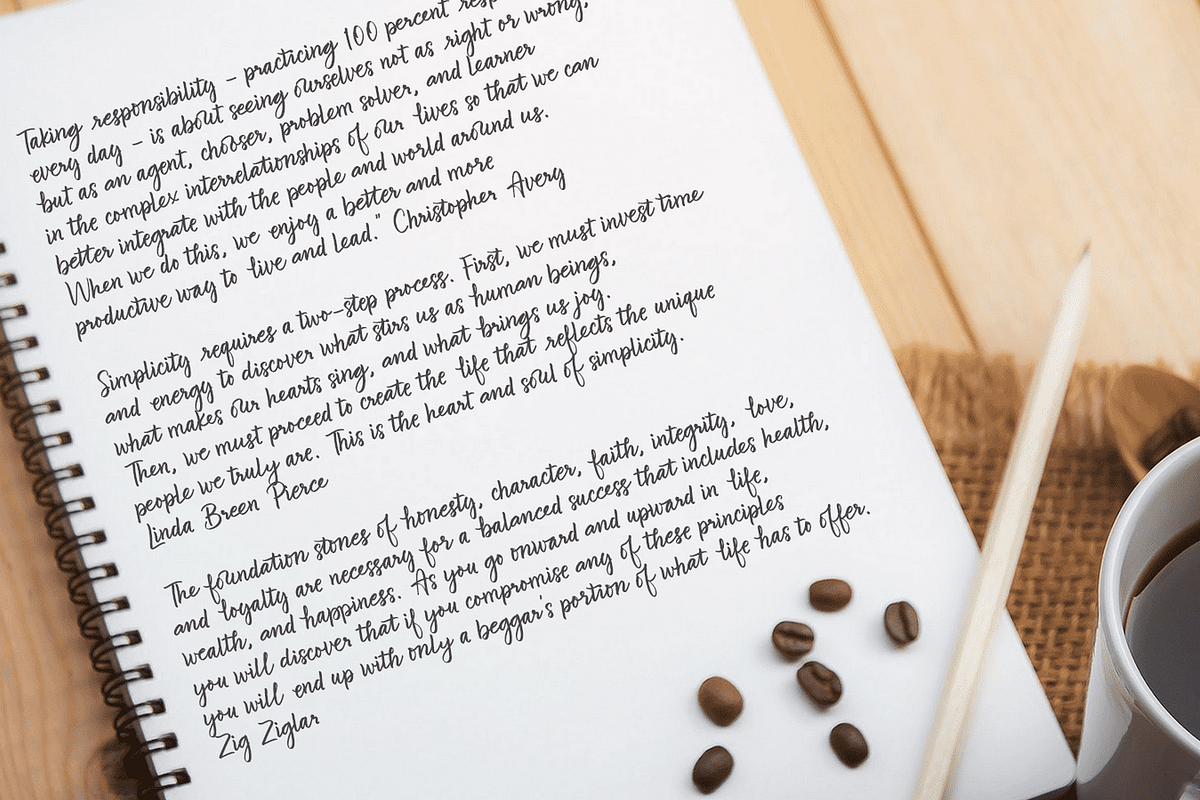 Taking responsibility – practicing 100 percent
every day – is about seeing ourselves not as right or wrong,
but as an agent, chooser, problem solver, and learner
in the complex interrelationships of our lives so that we can
better integrate with the people and world around us.
When we do this, we enjoy a better and more
productive way to live and lead." Christopher Avery
Simplicity requires a two-step process. First, we must invest time
and energy to discover what stirs us as human beings,
what makes our hearts sing, and what brings us joy.
Then, we must proceed to create the life that reflects the unique
people we truly are. This is the heart and soul of simplicity.
Linda Breen Pierce
The foundation stones of honesty, character, faith, integrity, love,
and loyalty are necessary for a balanced success that includes health,
wealth, and happiness. As you go onward and upward in life,
you will discover that if you compromise any of these principles
you will end up with only a beggar's portion of what life has to offer.
Zig Ziglar